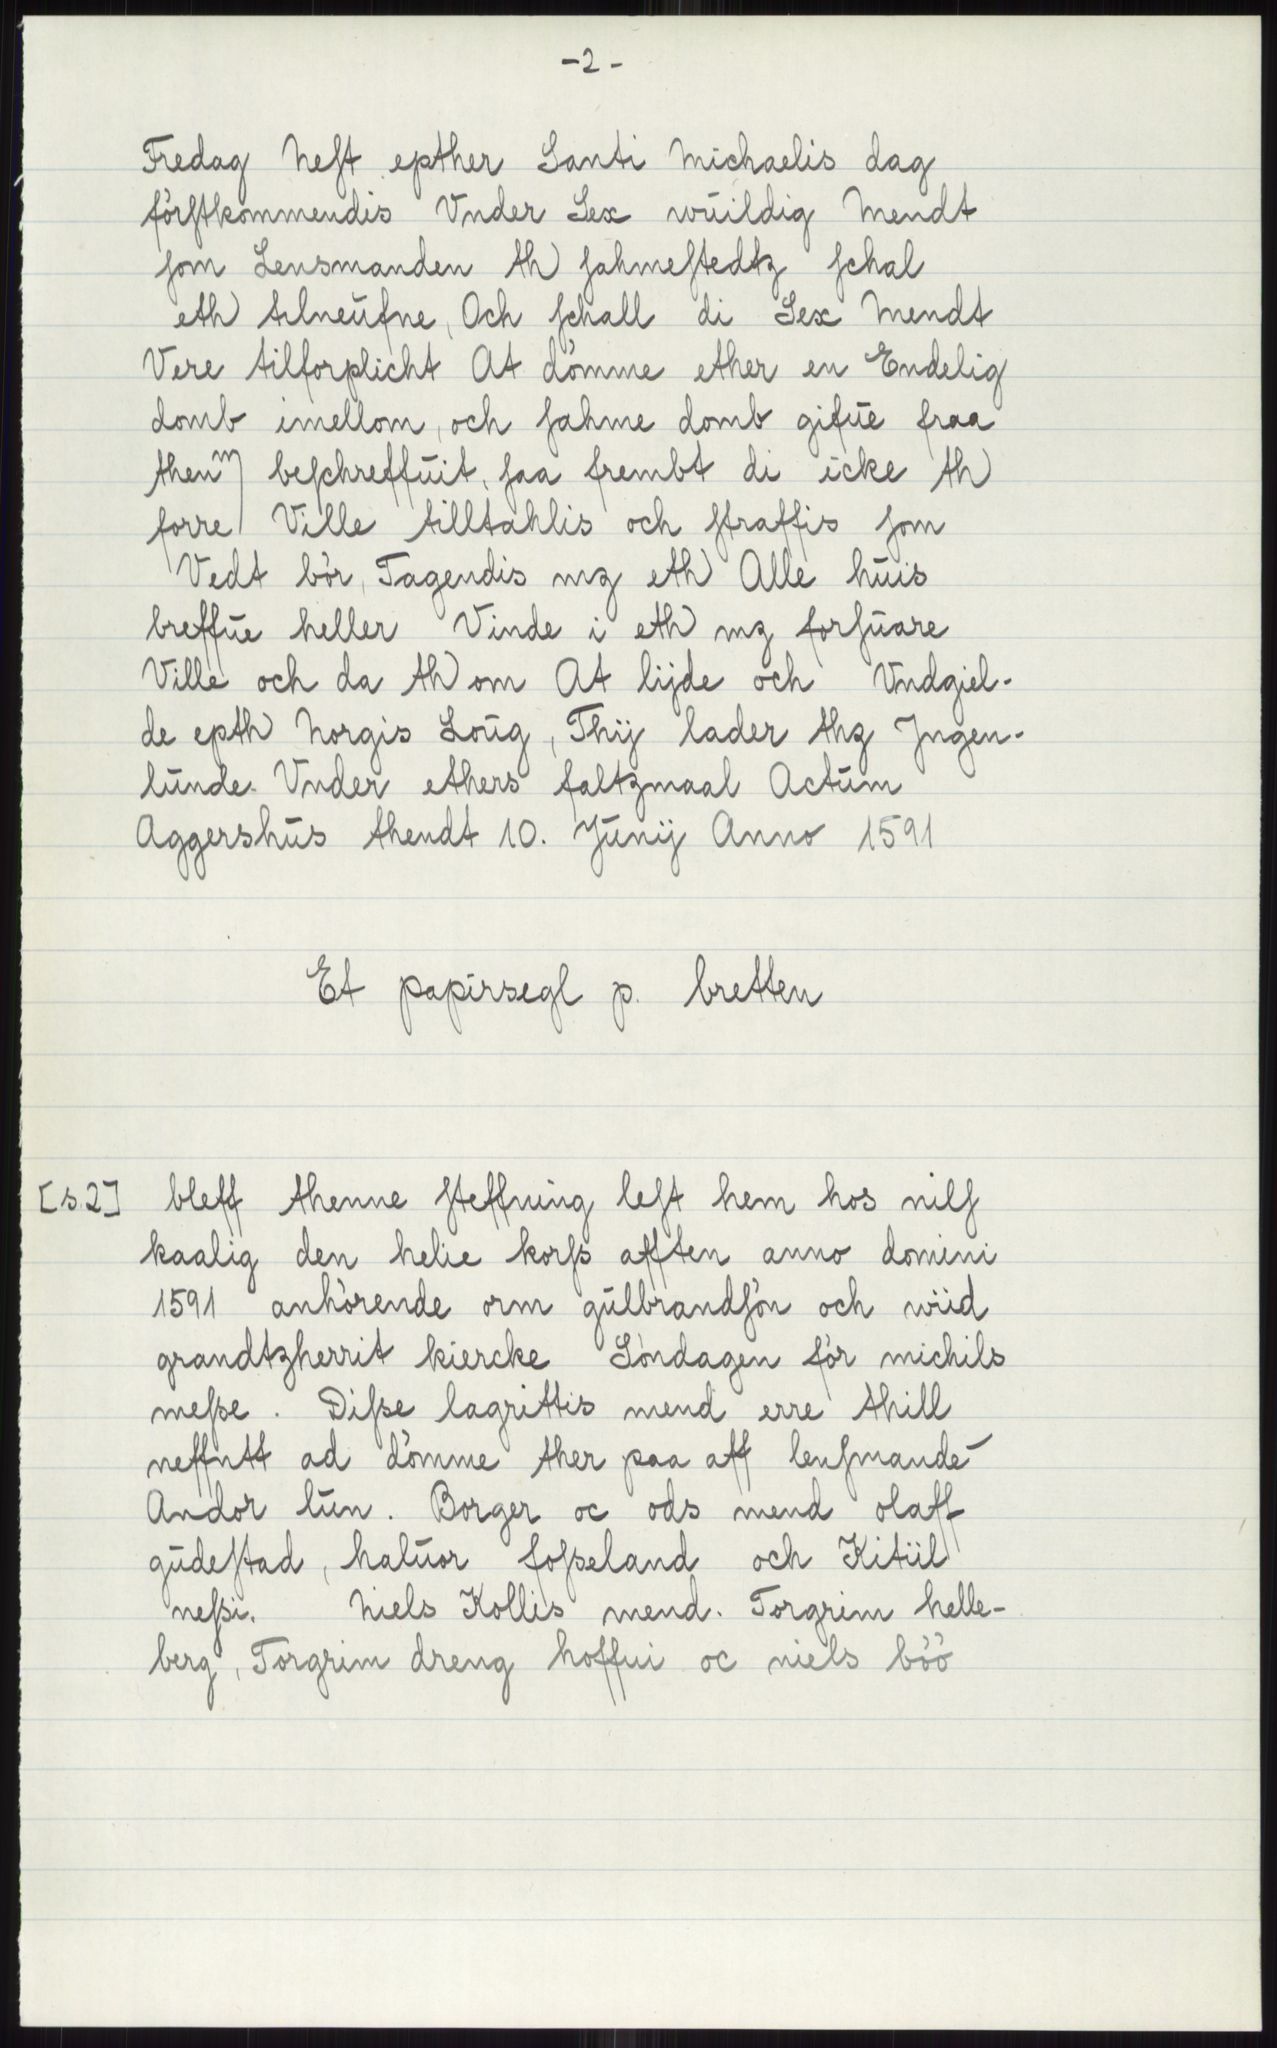 -2-
Fredag Neſt epther Santi Michaelis dag
förſtkommendis Vnder Sex wŭildig Mendt
ſom Lensmanden th ſahmeſtedtz ſchal
eth tilneŭfne, Och ſchall di Sex Mendt
Vere tilforplicht At dömme ether en Endelig
domb imellom, och ſahme domb gifŭe fraa
thenm beſchreffŭit, ſaa frembt di icke th
forre Ville tilltahlis och ſtraffis ſom
Vedt bör, Tagendis mz eth Alle hŭis
breffŭe heller Vinde i eth mz forſŭare
Ville och da th om At lijde och Vndgiel-
de epth Norgis Loŭg, Thij lader thz Jngen-
lŭnde Vnder ethers faltzmaal Actŭm
Aggershŭs thendt 10. Jŭnij Anno 1591
Et papirsegl p. bretten
[s.2] bleff thenne ſteffning leſt hem hos nilſ
kaalig den helie korſs afften anno domini
1591 anhörende orm gŭlbrandſön och wiid
grandtzherrit kiercke Söndagen för michils
meſse. Diſse lagrittis mend erre thill
neffntt ad dömme ther paa aff lenſmande
Andor lŭn. Borger oc ods mend olaff
gŭdeſtad, halŭor foſseland och Kitiil
neſsi. Niels Kollis mend. Torgrim helle-
berg, Torgrim dreng hoffui oc niels böö